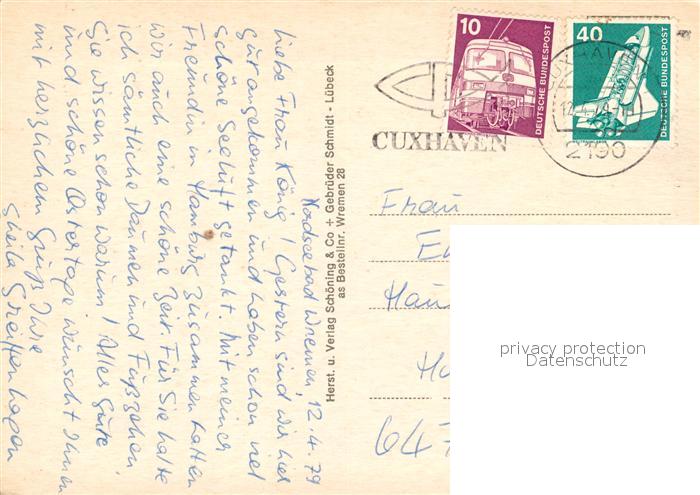 Nordseebad Wremen, 12.4.79
Liebe Frau König! Gestern sind wir hier
gut angekommen und haben schon viel
schöne Seeluft getankt. Mit meiner
Freundin in Hamburg zusammen hatten
wir auch eine schöne Zeit. Für Sie halte
ich sämtliche Daumen und Fußzehen,
Sie wissen schon warum! Alles Gute
und schöne Ostertage wünscht Ihnen
mit herzlichem Gruß Ihre
Sheila Greiffenhagen
Herst. u. Verlag Schöning & Co + Gebrüder Schmidt - Lübeck
as Bestellnr. Wremen 28
10
DEUTSCHE BUNDESPOST
40
DEUTSCHE BUNDESPOST
CUXHAVEN
CUXHAVEN
2190
Frau
647
privacy protection
Datenschutz